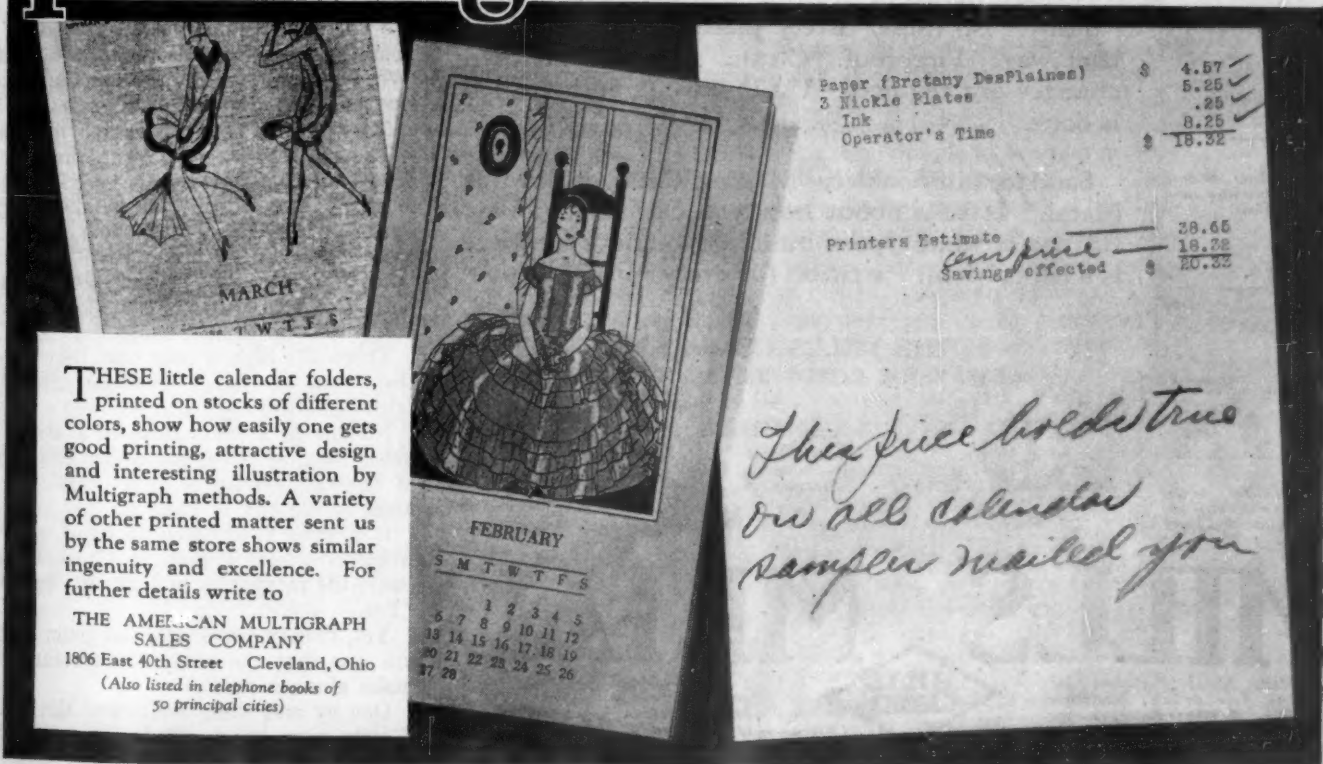 MARCH
M T W T F S
THESE little calendar folders,
printed on stocks of different
colors, show how easily one gets
good printing, attractive design
and interesting illustration by
Multigraph methods. A variety
of other printed matter sent us
by the same store shows similar
ingenuity and excellence. For
further details write to
THE AMERICAN MULTIGRAPH
SALES COMPANY
1806 East 40th Street Cleveland, Ohio
(Also listed in telephone books of
50 principal cities)
FEBRUARY
S M T W T F S
1 2 3 4 5
6 7 8 9 10 11 12
13 14 15 16 17 18 19
20 21 22 23 24 25 26
27 28
Paper (Bretany DesPlaines) $ 4.57
3 Nickle Plates 5.25
Ink .25
Operator's Time 8.25
$ 18.32
Printers Estimate 38.65
our price 18.32
Savings effected $ 20.33
This price holds true
on all calendar
samples mailed you